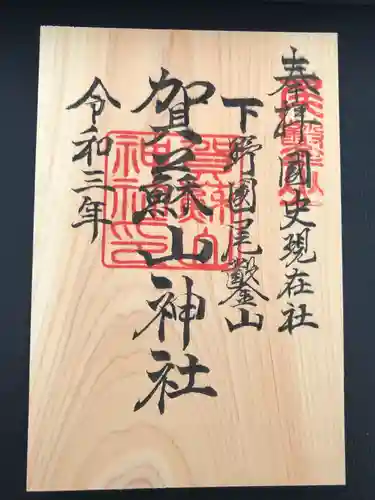 奉拝國史現在社
下野國尾鑿山
賀蘇山神社
令和三年
賀蘇山神社印